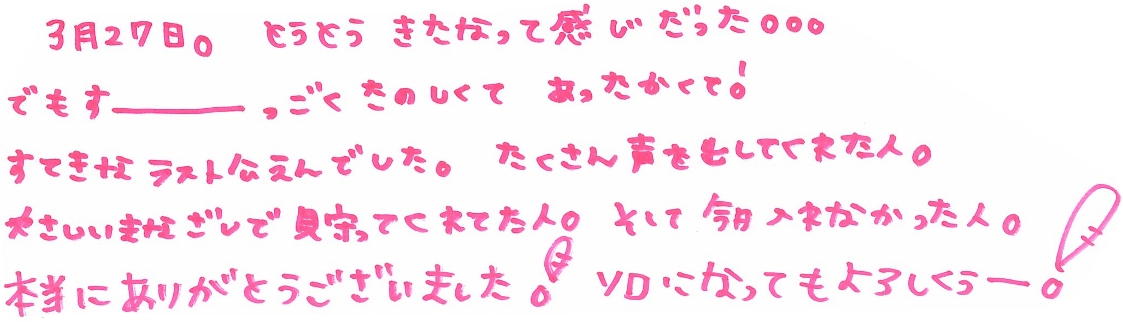 3月27日。 とうとう きたなって感じだった。。。
でもす———っごくたのしくて あったかくて!
すてきなラスト公えんでした。 たくさん声を出してくれた人。
やさしいまなざしで見守ってくれてた人。 そして今日入れなかった人。
本当にありがとうございました! VDになってもよろしくぅー!